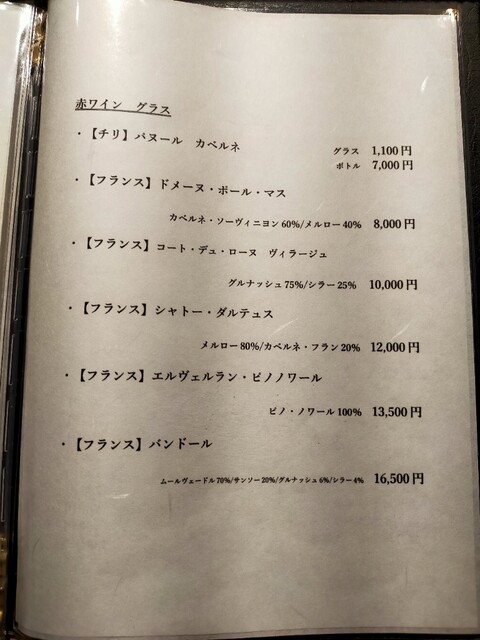 赤ワイン　グラス
・【チリ】バヌール　カベルネ
グラス 1,100 円
ボトル 7,000 円
・【フランス】ドメーヌ・ポール・マス
カベルネ・ソーヴィニヨン 60%/メルロー 40% 8,000 円
・【フランス】コート・デュ・ローヌ　ヴィラージュ
グルナッシュ 75%/シラー 25% 10,000 円
・【フランス】シャトー・ダルテュス
メルロー 80%/カベルネ・フラン 20% 12,000 円
・【フランス】エルヴェルラン・ピノノワール
ピノ・ノワール 100% 13,500 円
・【フランス】バンドール
ムールヴェードル 70%/サンソー 20%/グルナッシュ 6%/シラー 4% 16,500 円